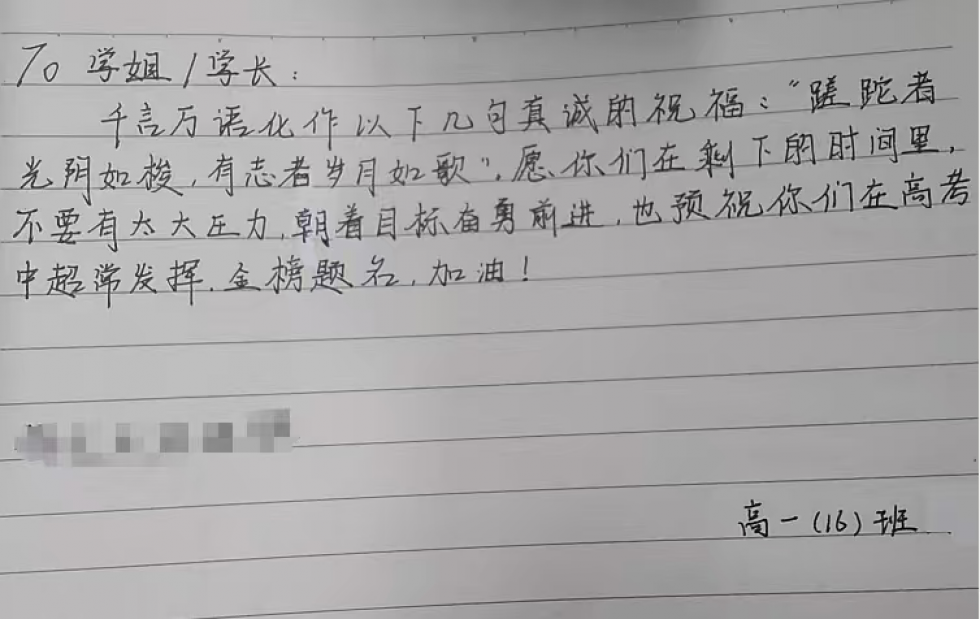 To 学姐/学长：
千言万语化作以下几句真诚的祝福："蹉跎者
光阴如梭，有志者岁月如歌"，愿你们在剩下的时间里，
不要有太大压力，朝着目标奋勇前进，也预祝你们在高考
中超常发挥，金榜题名，加油！
高一（16）班